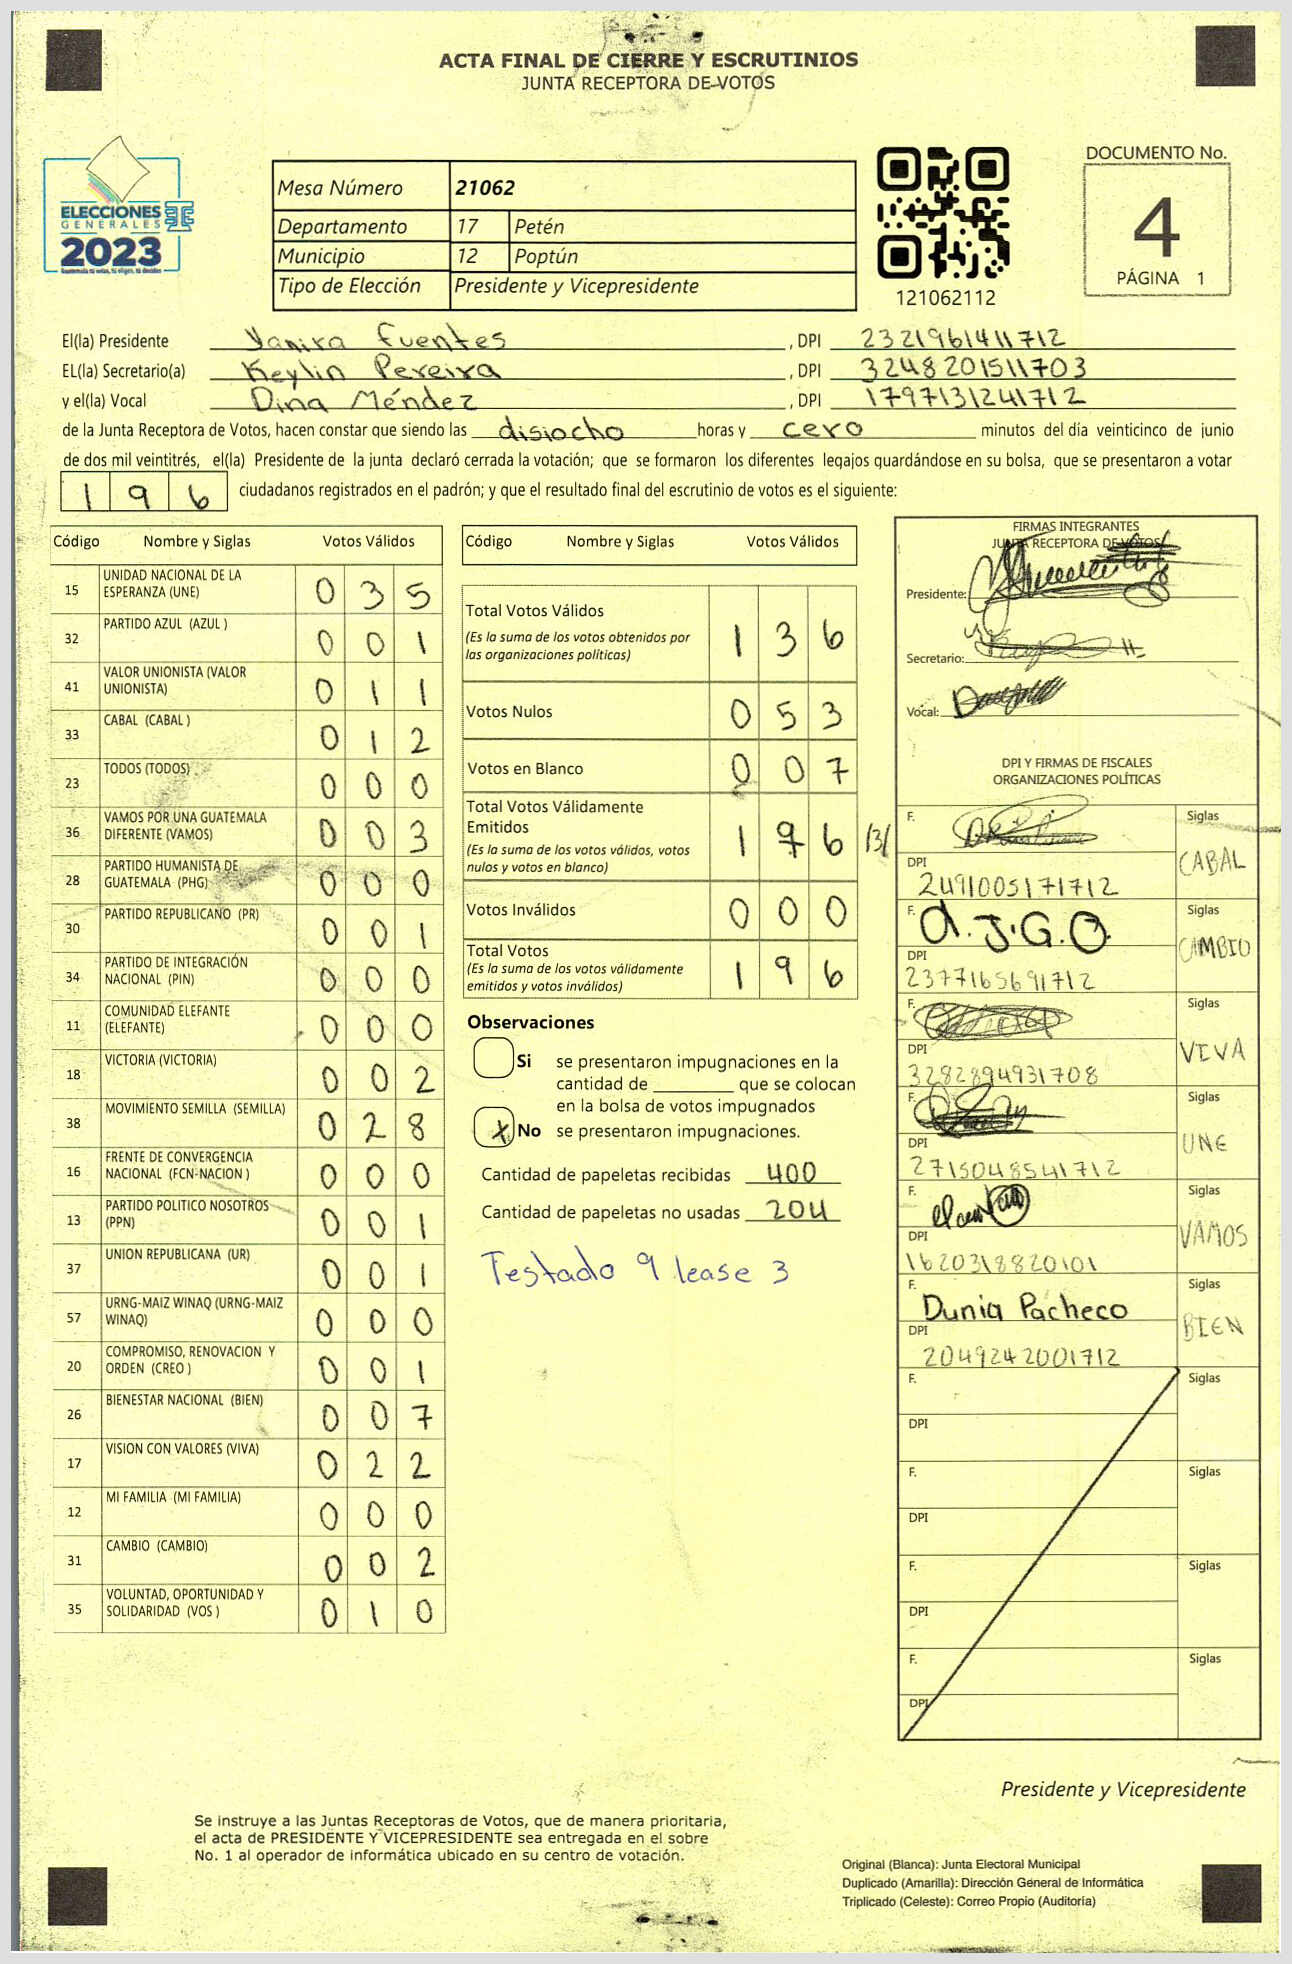 ACTA FINAL DE CIERRE Y ESCRUTINIOS
JUNTA RECEPTORA DE VOTOS
ELECCIONES
GENERALES
2023
Guatemala tú votas, tú eliges, tú decides
Mesa Número 21062
Departamento 17 Petén
Municipio 12 Poptún
Tipo de Elección Presidente y Vicepresidente
121062112
DOCUMENTO No.
4
PÁGINA 1
El(la) Presidente Yanira Fuentes, DPI 2321961411712
EL(la) Secretario(a) Keylin Pereira, DPI 3248201511703
y el(la) Vocal Dina Méndez, DPI 1797131241712
de la Junta Receptora de Votos, hacen constar que siendo las disiocho horas y cero minutos del día veinticinco de junio
de dos mil veintitrés, el(la) Presidente de la junta declaró cerrada la votación; que se formaron los diferentes legajos guardándose en su bolsa, que se presentaron a votar
196 ciudadanos registrados en el padrón; y que el resultado final del escrutinio de votos es el siguiente:
Código Nombre y Siglas Votos Válidos
15 UNIDAD NACIONAL DE LA ESPERANZA (UNE) 035
32 PARTIDO AZUL (AZUL ) 001
41 VALOR UNIONISTA (VALOR UNIONISTA) 011
33 CABAL (CABAL ) 012
23 TODOS (TODOS) 000
36 VAMOS POR UNA GUATEMALA DIFERENTE (VAMOS) 003
28 PARTIDO HUMANISTA DE GUATEMALA (PHG) 000
30 PARTIDO REPUBLICANO (PR) 001
34 PARTIDO DE INTEGRACIÓN NACIONAL (PIN) 000
11 COMUNIDAD ELEFANTE (ELEFANTE) 000
18 VICTORIA (VICTORIA) 002
38 MOVIMIENTO SEMILLA (SEMILLA) 028
16 FRENTE DE CONVERGENCIA NACIONAL (FCN-NACION ) 000
13 PARTIDO POLITICO NOSOTROS (PPN) 001
37 UNION REPUBLICANA (UR) 001
57 URNG-MAIZ WINAQ (URNG-MAIZ WINAQ) 000
20 COMPROMISO, RENOVACION Y ORDEN (CREO ) 001
26 BIENESTAR NACIONAL (BIEN) 007
17 VISION CON VALORES (VIVA) 022
12 MI FAMILIA (MI FAMILIA) 000
31 CAMBIO (CAMBIO) 002
35 VOLUNTAD, OPORTUNIDAD Y SOLIDARIDAD (VOS ) 010
Código Nombre y Siglas Votos Válidos
Total Votos Válidos 136
(Es la suma de los votos obtenidos por
las organizaciones políticas)
Votos Nulos 053
Votos en Blanco 007
Total Votos Válidamente
Emitidos 196 /3/
(Es la suma de los votos válidos, votos
nulos y votos en blanco)
Votos Inválidos 000
Total Votos 196
(Es la suma de los votos válidamente
emitidos y votos inválidos)
Observaciones
Si se presentaron impugnaciones en la
cantidad de ________ que se colocan
en la bolsa de votos impugnados
X No se presentaron impugnaciones.
Cantidad de papeletas recibidas 400
Cantidad de papeletas no usadas 204
Testado 9 lease 3
FIRMAS INTEGRANTES
JUNTA RECEPTORA DE VOTOS
Presidente:
Secretario:
Vocal:
DPI Y FIRMAS DE FISCALES
ORGANIZACIONES POLÍTICAS
F. Siglas
DPI CABAL
2491005171712
F. A.J.G.O. Siglas
DPI CAMBIO
2377165691712
F. Siglas
DPI VIVA
3282894931708
F. Siglas
DPI UNE
2715048541712
F. Siglas
DPI VAMOS
1620318820101
F. Dunia Pacheco Siglas
DPI BIEN
2049242001712
F. Siglas
DPI
F. Siglas
DPI
F. Siglas
DPI
F. Siglas
DPI
Presidente y Vicepresidente
Se instruye a las Juntas Receptoras de Votos, que de manera prioritaria,
el acta de PRESIDENTE Y VICEPRESIDENTE sea entregada en el sobre
No. 1 al operador de informática ubicado en su centro de votación.
Original (Blanca): Junta Electoral Municipal
Duplicado (Amarilla): Dirección General de Informática
Triplicado (Celeste): Correo Propio (Auditoría)